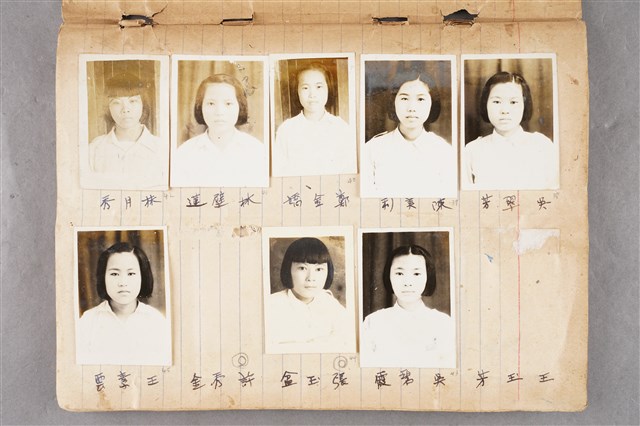 吳翠芳 陳美利 鄭金嬌 林壁蓮 林月秀
王玉芳 吳碧霞 張玉盆 許秀金 王雲